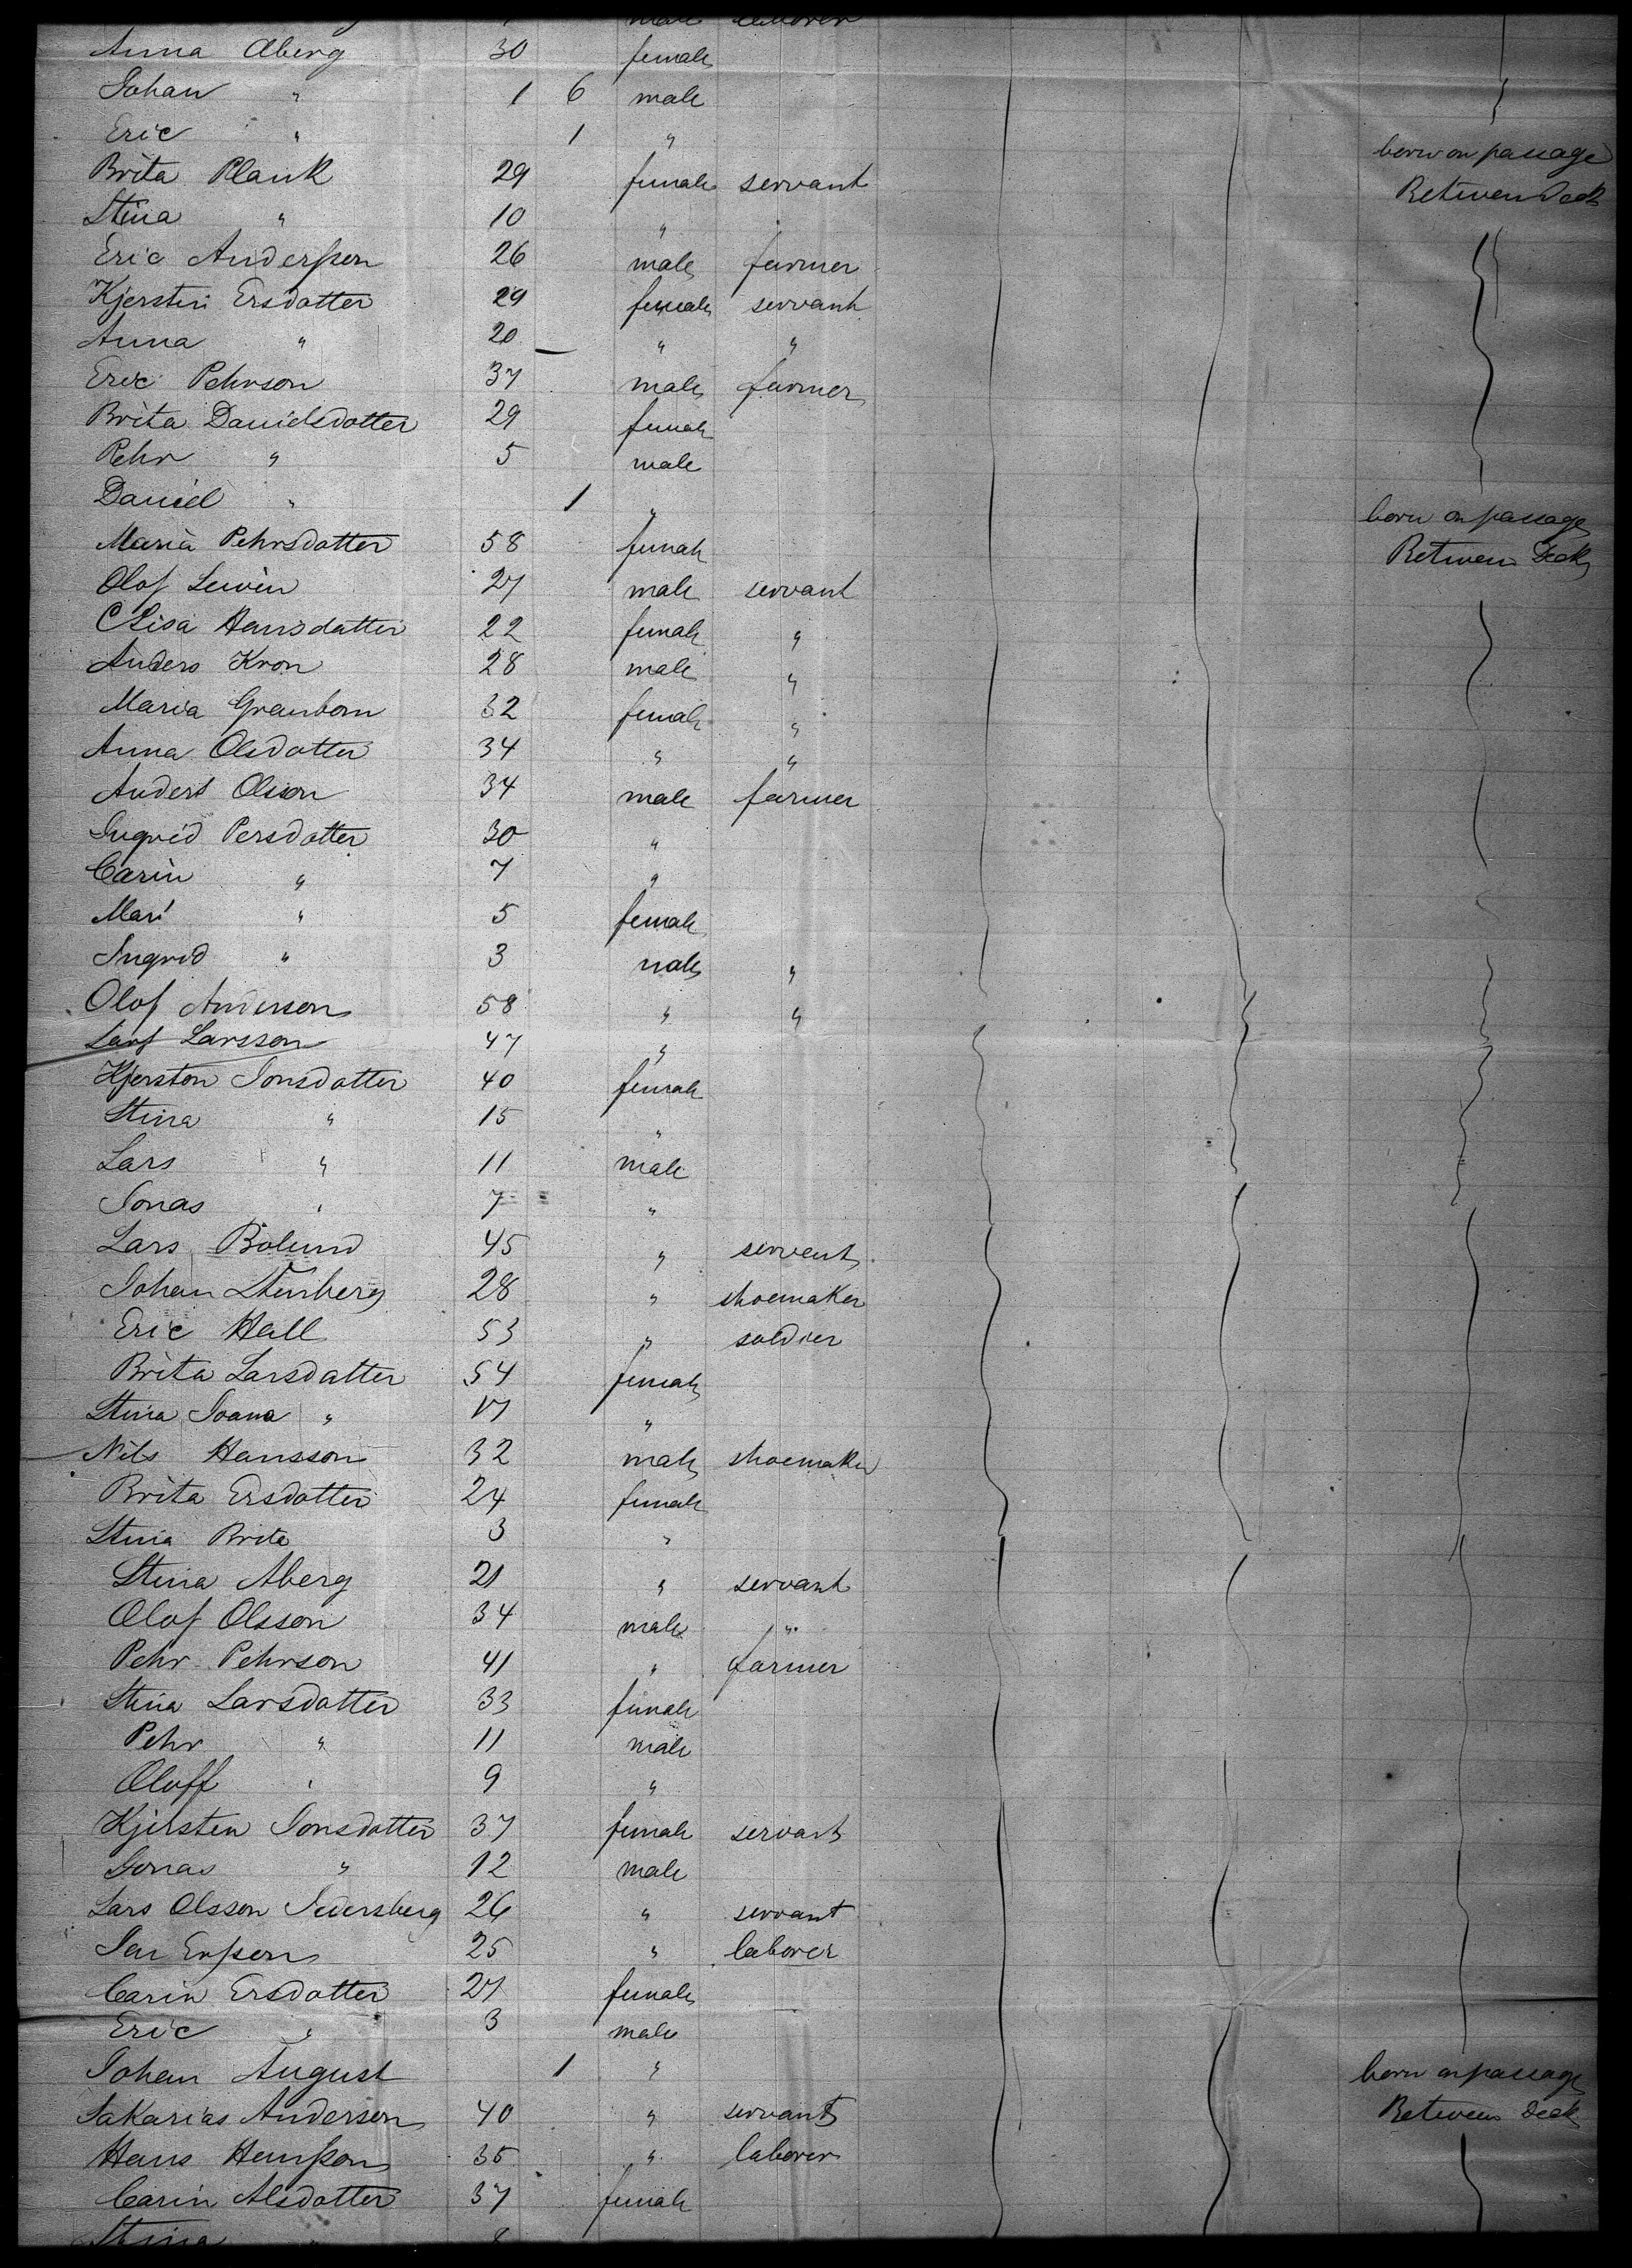 male laborer
Anna Aberg 30 female
Johan " 1 6 male
Eric " 1 " born on passage
Brita Plank 29 female servant Between Deck
Stina " 10 "
Eric Andersson 26 male farmer
Kjersten Ersdotter 29 female servant
Anna " 20 " "
Eric Pehrson 37 male farmer
Brita Danielsdotter 29 female
Pehr " 5 male
Daniel " 1 " born on passage
Maria Pehrsdotter 58 female Between Deck
Olof Lewin 27 male servant
Hansdatter 22 female "
Anders Kron 28 male "
Maria Granbom 32 female "
Anna Olsdotter 34 " "
Anders Olsson 34 male farmer
Ingrid Persdotter 30 "
Carin " 7 "
Mari " 5 female
Ingrid " 3 male "
Olof Anderson 58 " "
Lars Larsson 47 "
Kjersten Jonsdotter 40 female
Stina " 15 "
Lars " 11 male
Jonas " 7 "
Lars Bolund 45 " servent
Johan Stenberg 28 " shoemaker
Eric Hall 53 " soldier
Brita Larsdatter 54 female
Stina Joana " 17 "
Nils Hansson 32 male shoemaker
Brita Ersdotter 24 female
Stina Brita 3 "
Stina Aberg 21 " servant
Olof Olsson 34 male "
Pehr Pehrson 41 " farmer
Stina Larsdotter 33 female
Pehr " 11 male
Oloff " 9 "
Kjersten Jonsdotter 37 female servant
Jonas " 12 male
Lars Olsson Sedersberg 26 " servant
Jan Ersson 25 " laborer
Carin Ersdotter 27 female
Eric " 3 male
Johan August 1 " born on passage
Sakarias Anderson 40 " servant Between Deck
Hans Hansson 35 " laborer
Carin Alsdotter 37 female
Stina " 8